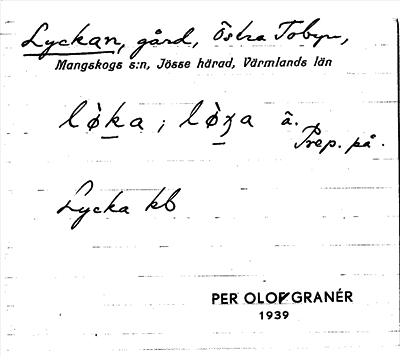 Lyckan, gård, Östra Tobyn,
Mangskogs s:n, Jösse härad, Värmlands län
lò̱ka ; lò̱ʒa â.
Prep. på.
Lycka kb
PER OLOF GRANÉR
1939